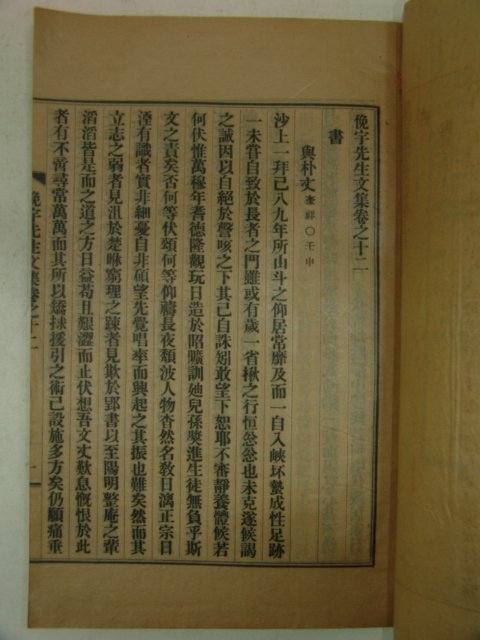 俛宇先生文集卷之十二
書
與朴丈 奎祥○壬申
沙上一拜已八九年所山斗之仰居常靡及而一自入峽坏蟄成性足跡
一未嘗自致於長者之門雖或有歲一省楸之行恒忩忩也未克遂候謁
之誠因以自絶於聲咳之下其己自誅矧敢望下恕耶不審靜養體候若
何伏惟萬穆年耆德隆觀玩日造於昭曠訓廸兒孫奬進生徒無負乎斯
文之責矣否何等伏頌何等仰禱長夜頹波人物杳然名敎日漓正宗日
湮有識者實非細憂自非碩望先覺唱率而興起之其振也難矣然而其
立志之弱者見沮於楚咻窮理之踈者見欺於郢書以至陽明整庵之輩
滔滔皆是而之道之方日益苟且艱澀而止伏想吾文丈歎息慨恨於此
者有不啻尋常萬萬而其所以矯捄援引之術已設施多方矣仍願痛垂
俛宇先生文集卷之十二
一